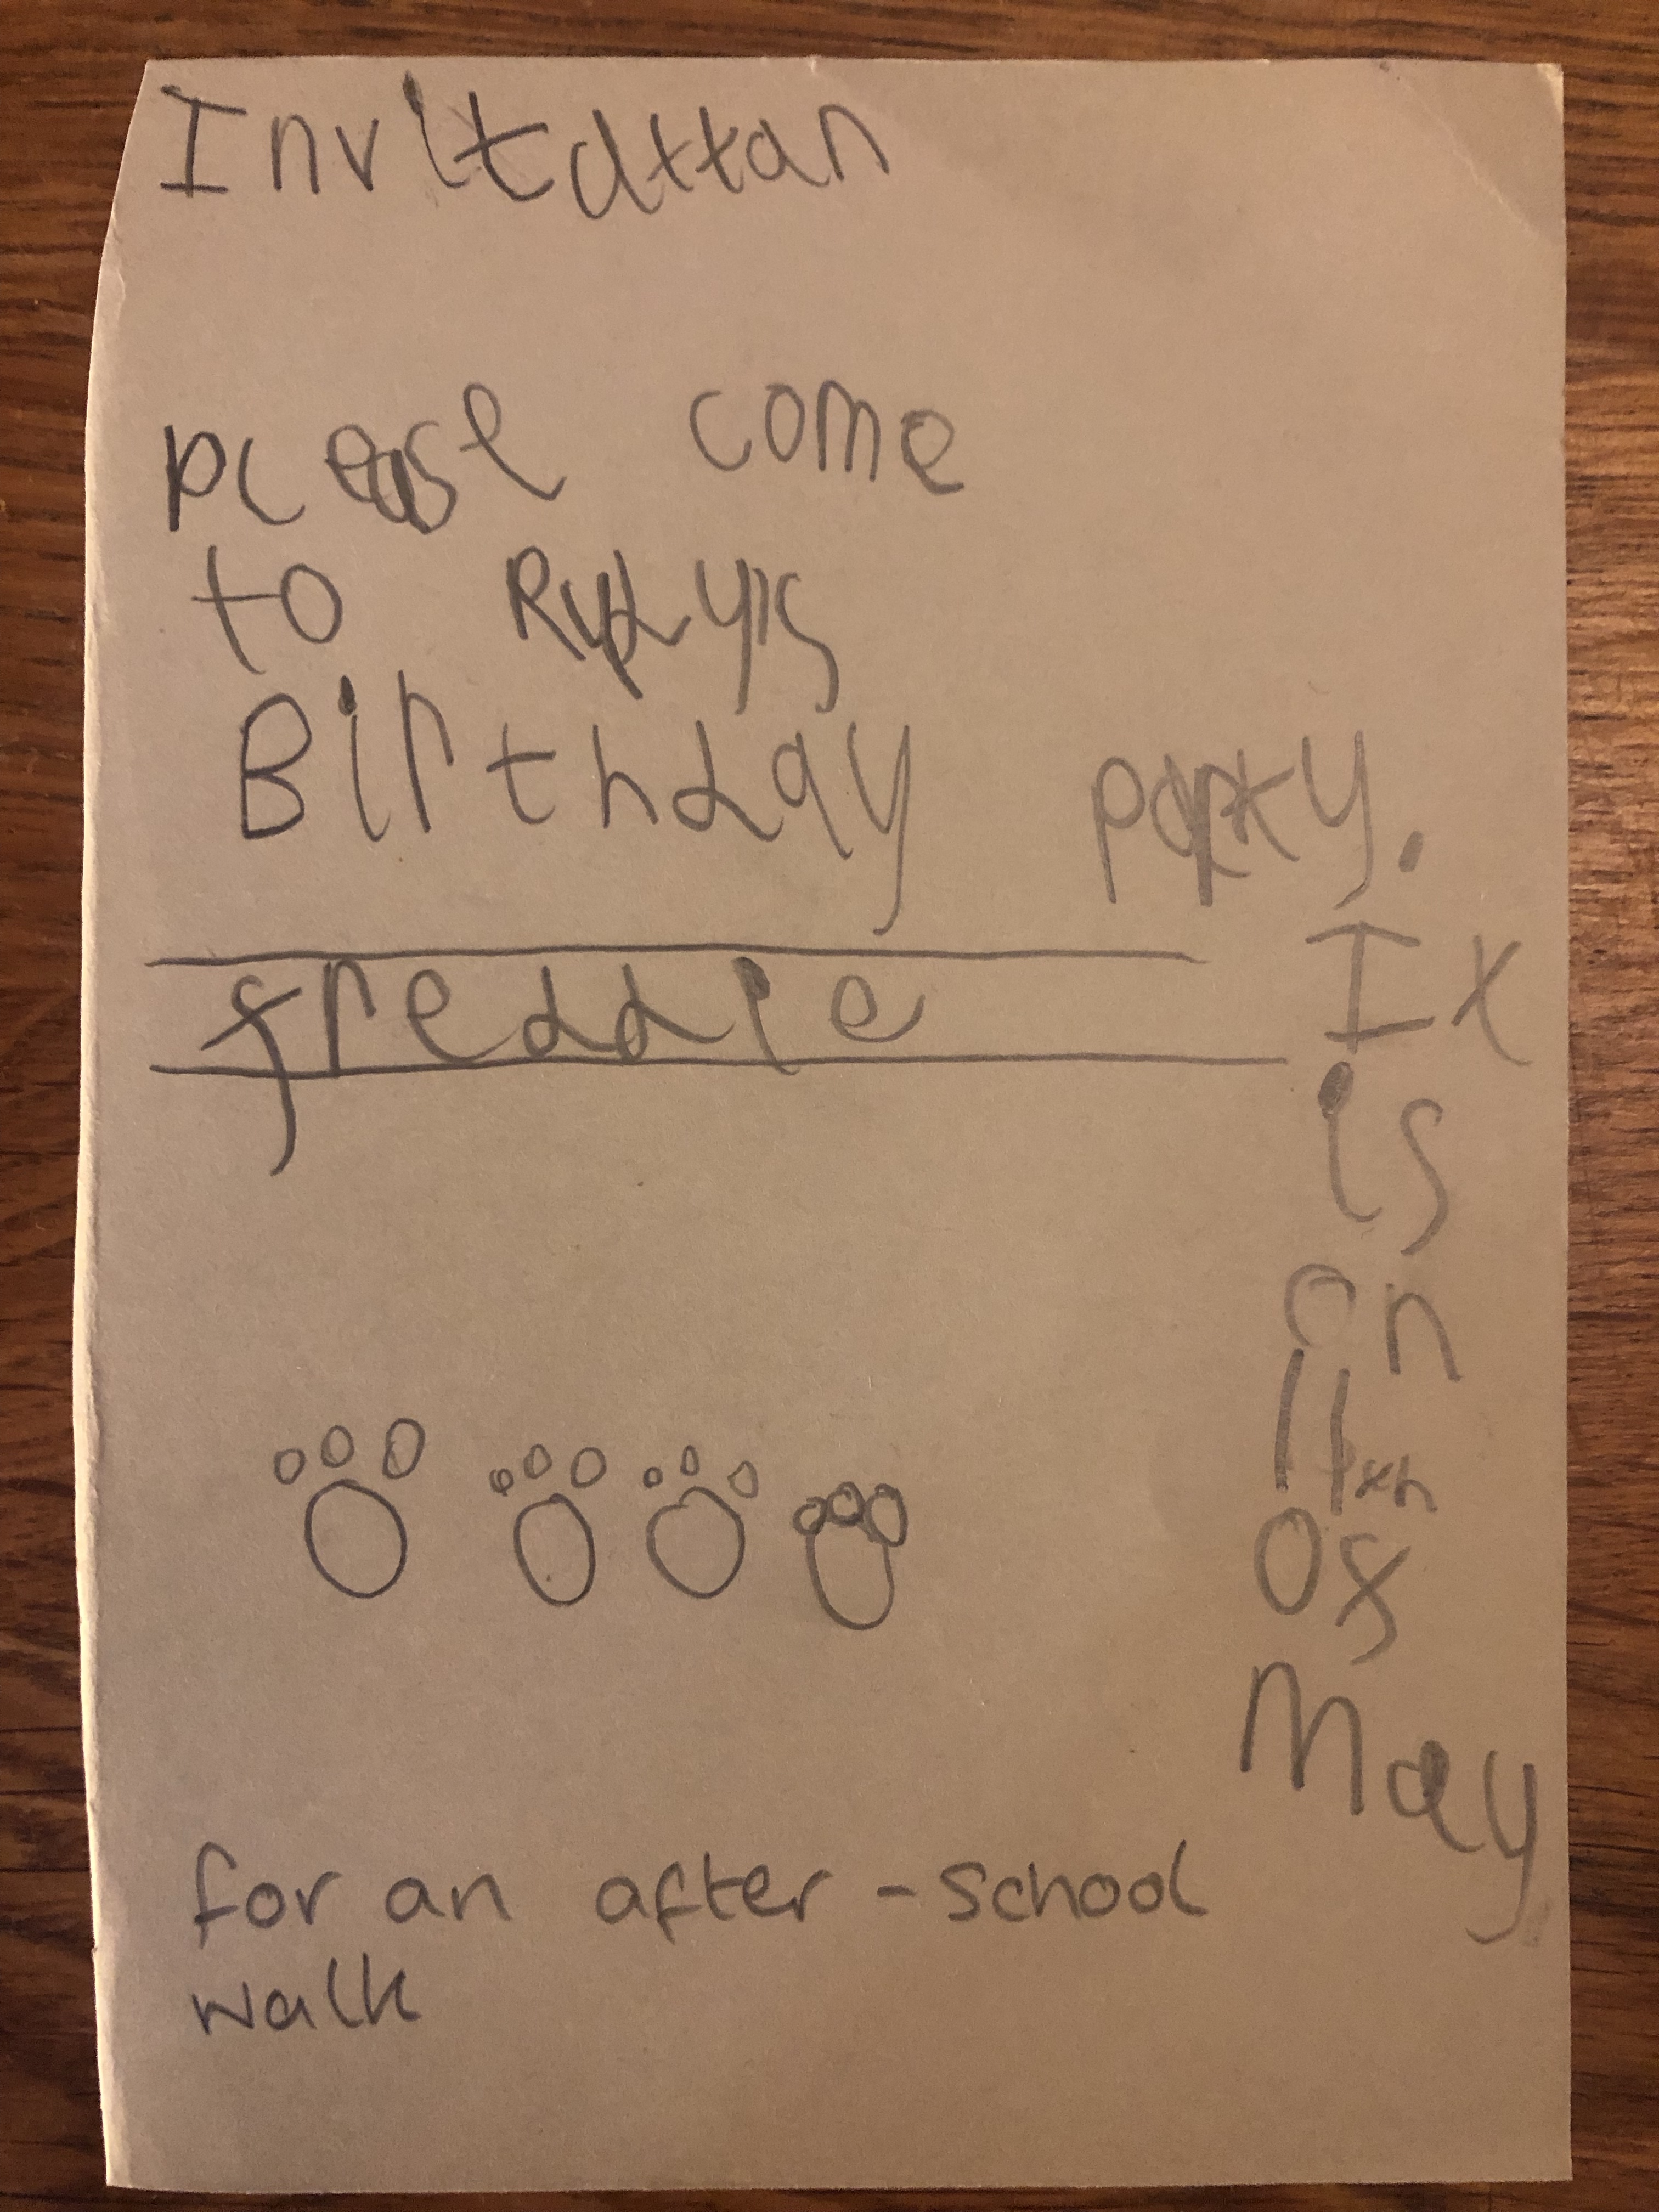 Invitattan
please come
to Rudy's
Birthday party.
It
is
on
11th
of
May
freddie
for an after-school
walk